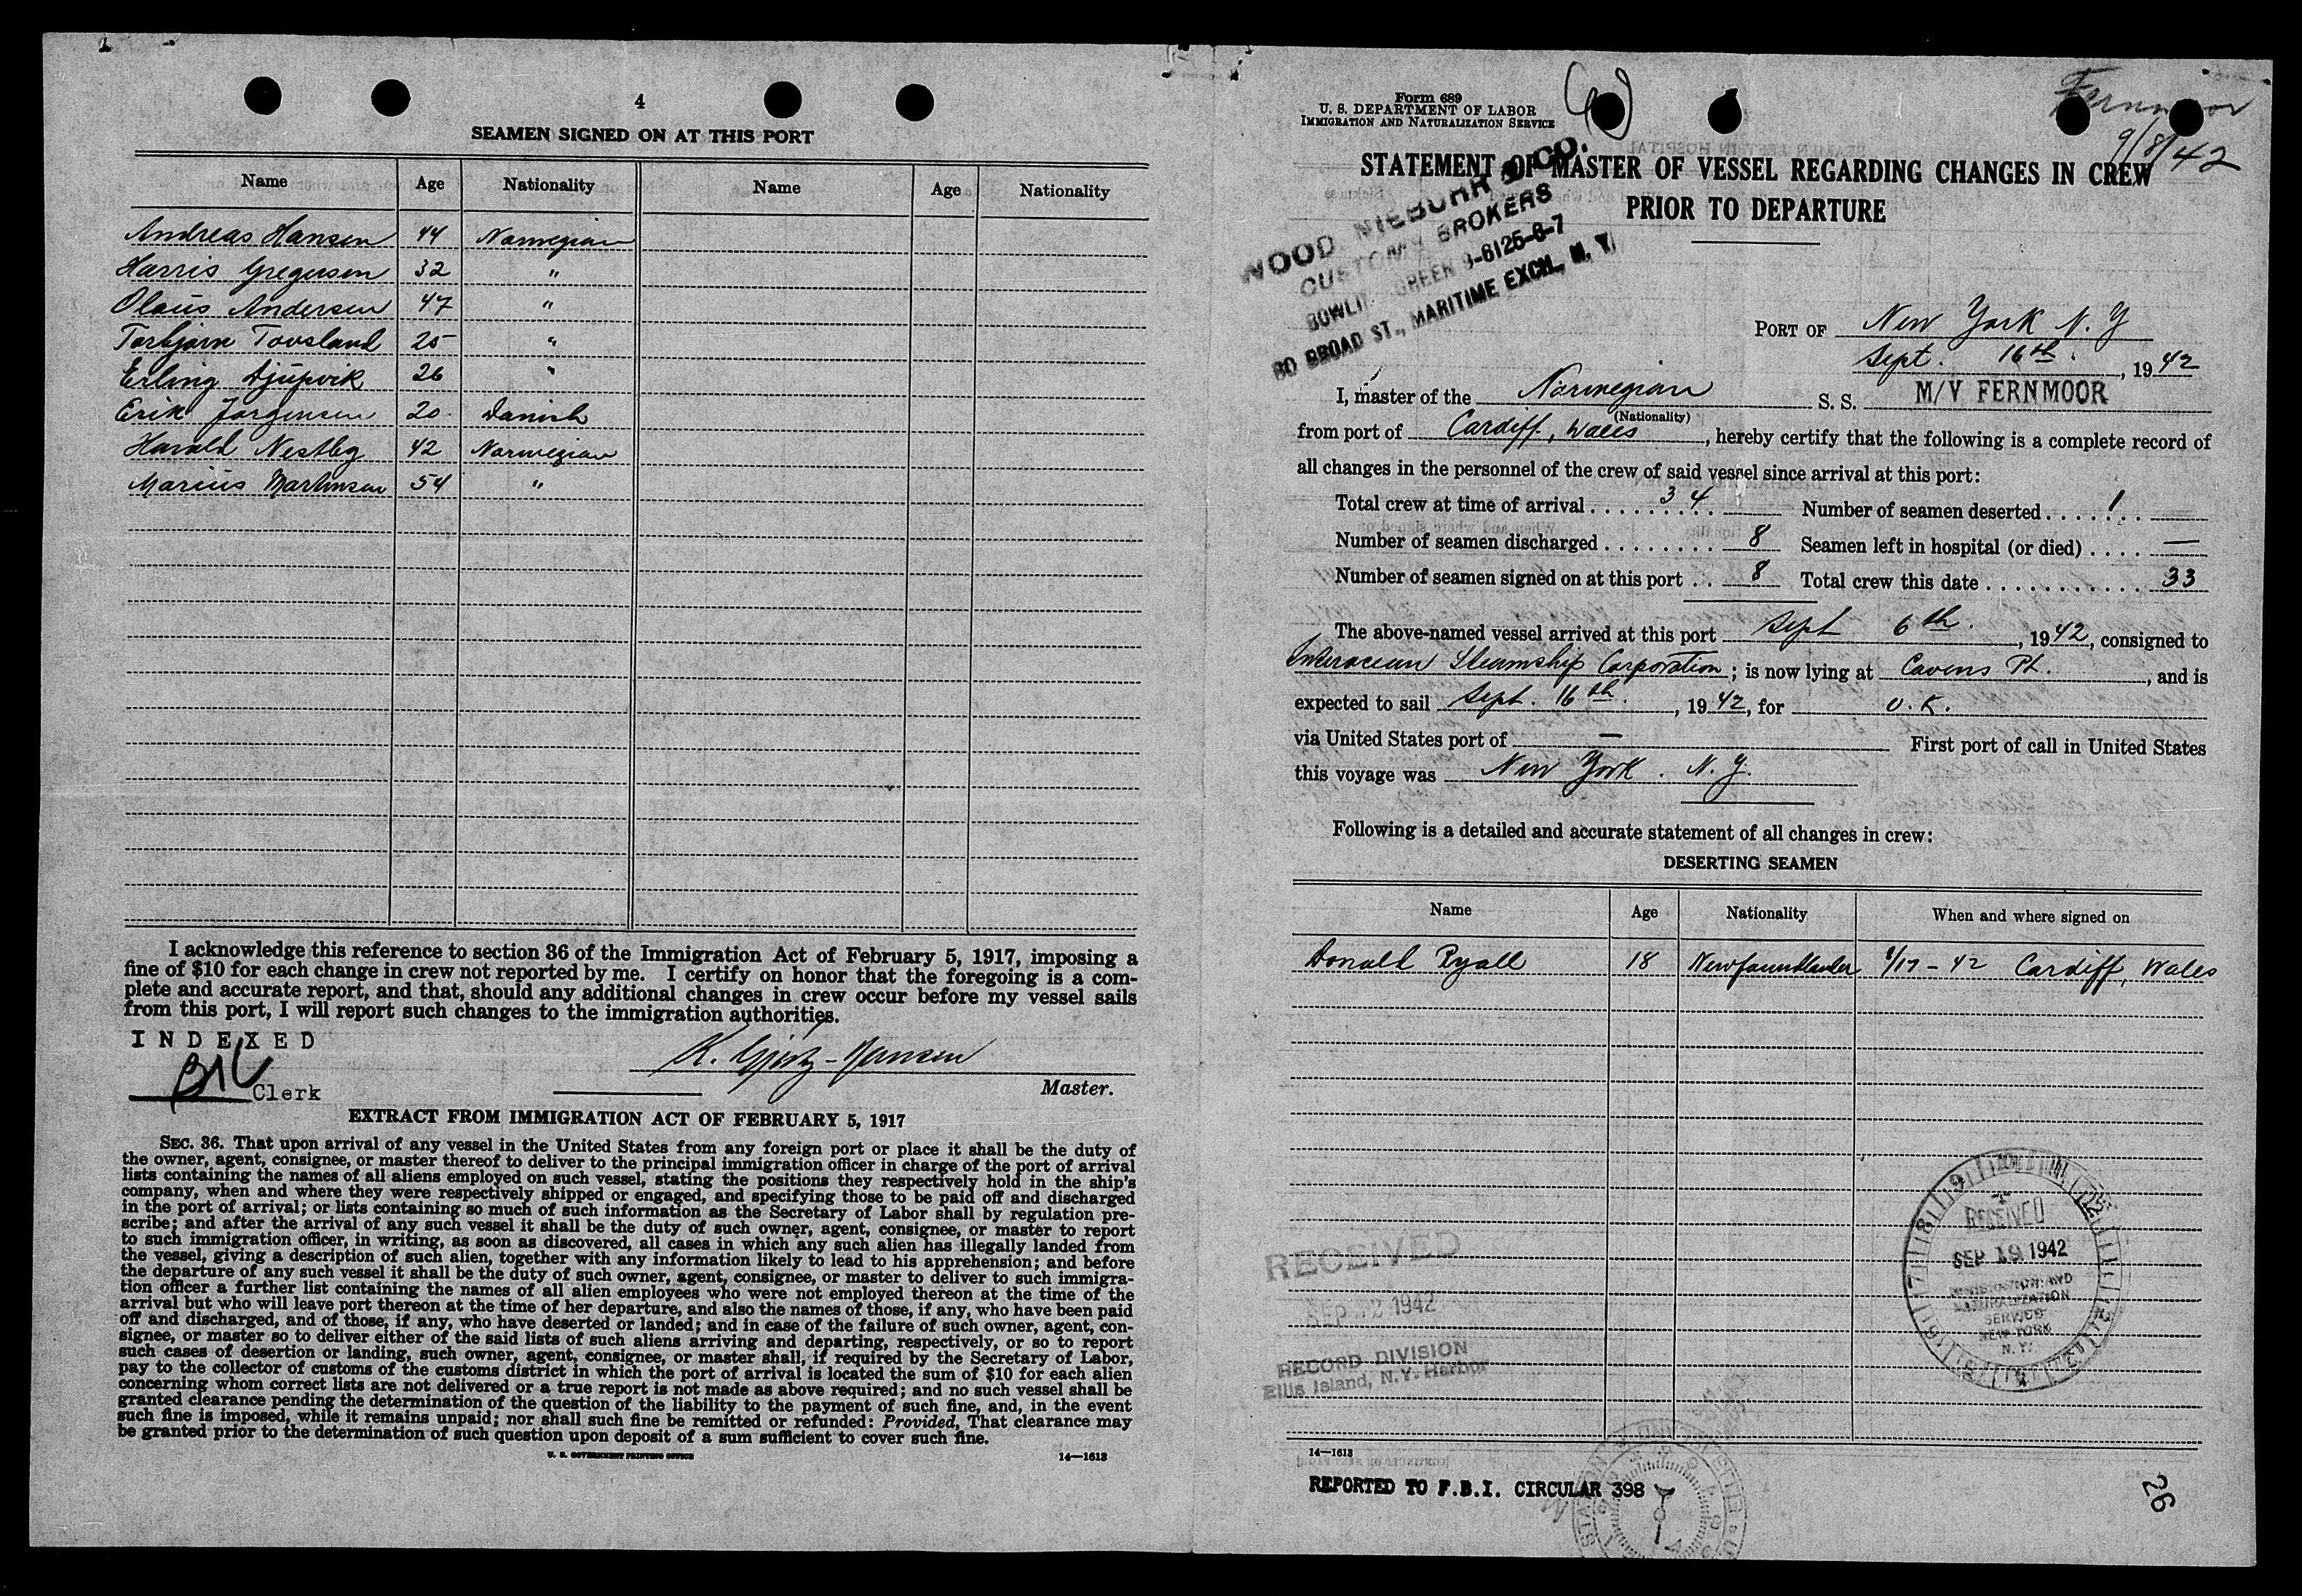 4
SEAMEN SIGNED ON AT THIS PORT
Name Age Nationality Name Age Nationality
Andreas Hansen 44 Norwegian
Harris Gregersen 32 "
Olaus Andersen 47 "
Torbjørn Tovsland 25 "
Erling Djupvik 26 "
Erik Jørgensen 20 Danish
Harald Nestby 42 Norwegian
Marius Martinsen 54 "
I acknowledge this reference to section 36 of the Immigration Act of February 5, 1917, imposing a
fine of $10 for each change in crew not reported by me. I certify on honor that the foregoing is a com-
plete and accurate report, and that, should any additional changes in crew occur before my vessel sails
from this port, I will report such changes to the immigration authorities.
INDEXED
Clerk
Master.
EXTRACT FROM IMMIGRATION ACT OF FEBRUARY 5, 1917
SEC. 36. That upon arrival of any vessel in the United States from any foreign port or place it shall be the duty of
the owner, agent, consignee, or master thereof to deliver to the principal immigration officer in charge of the port of arrival
lists containing the names of all aliens employed on such vessel, stating the positions they respectively hold in the ship's
company, when and where they were respectively shipped or engaged, and specifying those to be paid off and discharged
in the port of arrival; or lists containing so much of such information as the Secretary of Labor shall by regulation pre-
scribe; and after the arrival of any such vessel it shall be the duty of such owner, agent, consignee, or master to report
to such immigration officer, in writing, as soon as discovered, all cases in which any such alien has illegally landed from
the vessel, giving a description of such alien, together with any information likely to lead to his apprehension; and before
the departure of any such vessel it shall be the duty of such owner, agent, consignee, or master to deliver to such immigra-
tion officer a further list containing the names of all alien employees who were not employed thereon at the time of the
arrival but who will leave port thereon at the time of her departure, and also the names of those, if any, who have been paid
off and discharged, and of those, if any, who have deserted or landed; and in case of the failure of such owner, agent, con-
signee, or master so to deliver either of the said lists of such aliens arriving and departing, respectively, or so to report
such cases of desertion or landing, such owner, agent, consignee, or master shall, if required by the Secretary of Labor,
pay to the collector of customs of the customs district in which the port of arrival is located the sum of $10 for each alien
concerning whom correct lists are not delivered or a true report is not made as above required; and no such vessel shall be
granted clearance pending the determination of the question of the liability to the payment of such fine, and, in the event
such fine is imposed, while it remains unpaid; nor shall such fine be remitted or refunded: Provided, That clearance may
be granted prior to the determination of such question upon deposit of a sum sufficient to cover such fine.
U. S. GOVERNMENT PRINTING OFFICE 14—1613
Form 689
U. S. DEPARTMENT OF LABOR
IMMIGRATION AND NATURALIZATION SERVICE
Fernmoor
9/8/42
STATEMENT OF MASTER OF VESSEL REGARDING CHANGES IN CREW
PRIOR TO DEPARTURE
WOOD, NIEBUHR & CO.
CUSTOMS BROKERS
BOWLING GREEN 9-6125-6-7
80 BROAD ST., MARITIME EXCH., N. Y.
PORT OF New York N. Y
Sept. 16th, 1942
I, master of the Norwegian S. S. M/V FERNMOOR
(Nationality)
from port of Cardiff, Wales, hereby certify that the following is a complete record of
all changes in the personnel of the crew of said vessel since arrival at this port:
Total crew at time of arrival 34 Number of seamen deserted 1
Number of seamen discharged 8 Seamen left in hospital (or died) —
Number of seamen signed on at this port 8 Total crew this date 33
The above-named vessel arrived at this port Sept 6th, 1942, consigned to
Interocean Steamship Corporation; is now lying at Cavens Pt., and is
expected to sail Sept. 16th, 1942, for U. K.
via United States port of — First port of call in United States
this voyage was New York. N. Y.
Following is a detailed and accurate statement of all changes in crew:
DESERTING SEAMEN
Name Age Nationality When and where signed on
Donald Ryall 18 Newfoundlander 8/17-42 Cardiff, Wales
RECEIVED
SEP 19 1942
IMMIGRATION AND
NATURALIZATION
SERVICE
NEW YORK
N. Y.
RECEIVED
SEP 1942
RECORD DIVISION
Ellis Island, N.Y. Harbor
14—1613
REPORTED TO F.B.I. CIRCULAR 398
26